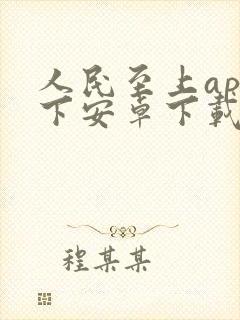 人民至上ap
下安卓下載
程某某